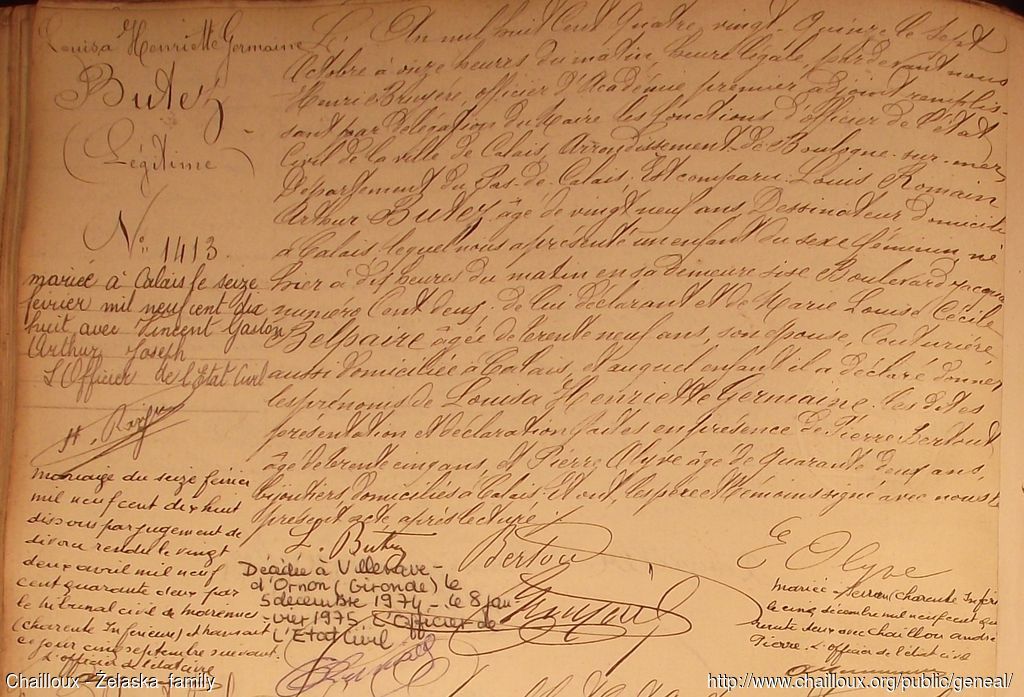 Louisa Henriette Germaine
Butez
(Légitime)
N° 1413.
mariée à Calais le seize
février mil neuf cent dix
huit avec Vincent Gaston
Arthur Joseph
L'Officier de l'Etat Civil
mariage du seize février
mil neuf cent dix huit
dissous par jugement de
divorce rendu le vingt
deux avril mil neuf
cent quarante deux par
le tribunal civil de marennes
(Charente Inférieure) et transcrit
ce jour cinq septembre suivant.
L'officier de l'état civil
L'An mil huit cent quatre vingt-quinze le sept
Octobre à onze heures du matin, heure légale, par devant nous
Henri Bruyère, officier d'Académie premier adjoint remplis-
sant par délégation du Maire les fonctions d'officier de l'état
Civil de la ville de Calais, Arrondissement de Boulogne-sur-mer,
Département du Pas-de-Calais; Est comparu: Louis Romain
Arthur Butez âgé de vingt neuf ans Dessinateur domicilié
à Calais, lequel nous a présenté un enfant du sexe féminin, né
hier à dix heures du matin en sa demeure sise Boulevard Jacquard
numéro Cent deux, de lui déclarant et de Marie Louise Cécile
Belpaire âgée de trente neuf ans, son épouse, Couturière
aussi domiciliée à Calais, et auquel enfant il a déclaré donner
les prénoms de Louisa Henriette Germaine. Les dites
présentation et déclaration faites en présence de Pierre Bertout
âgé de trente cinq ans, et Pierre Olyve âgé de quarante deux ans,
bijoutiers domiciliés à Calais. Et ont, les père et témoins signé avec nous le
présent acte, après lecture.
L. Butez
Bertou
E Olyve
Décédée à Villenave-
d'Ornon (Gironde) le
5 décembre 1974 - le 8 jan
vier 1975. L'Officier de
L'Etat Civil
mariée (Charente Inférie
le cinq décembre mil neuf cent qua
rante deux avec Chaillou andré
Pierre. L'officier de l'état civil
Chailloux - Żelaska family
http://www.chailloux.org/public/geneal/